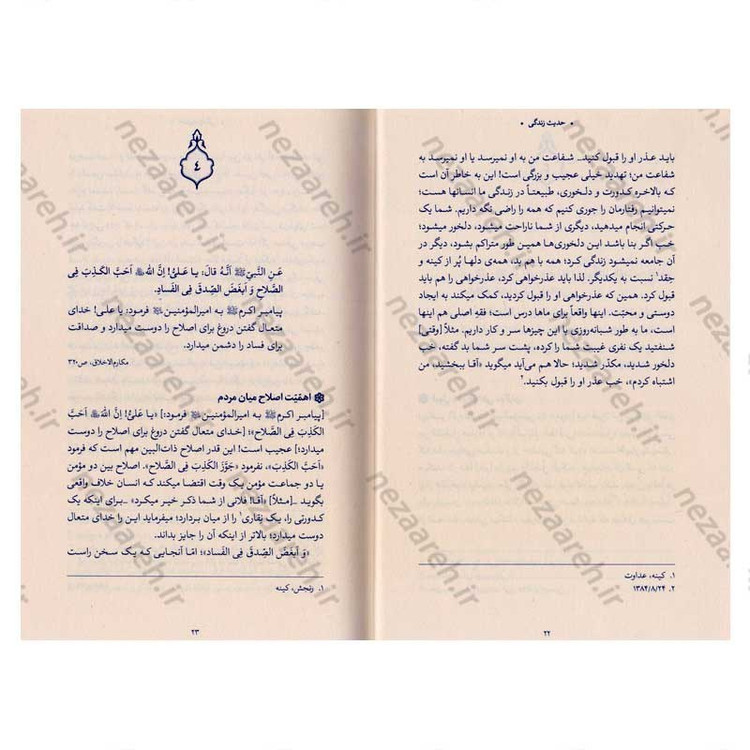 • حدیث زندگی •
باید عذر او را قبول کنید... شفاعت من به او نمیرسد یا او نمیرسد به
شفاعت من؛ تهدید خیلی عجیب و بزرگی است! این به خاطر آن است
که بالاخره کدورت و دلخوری، طبیعتاً در زندگی ما انسانها هست؛
نمیتوانیم رفتارمان را جوری کنیم که همه را راضی نگه داریم. شما یک
حرکتی انجام میدهید، دیگری از شما ناراحت میشود، دلخور میشود؛
خب اگر بنا باشد این دلخوری‌ها همین طور متراکم بشود، دیگر در
آن جامعه نمیشود زندگی کرد؛ همه با هم بد، همه‌ی دلها پُر از کینه و
حِقد۱ نسبت به یکدیگر. لذا باید عذرخواهی کرد، عذرخواهی را هم باید
قبول کرد. همین که عذرخواهی او را قبول کردید، کمک میکند به ایجاد
دوستی و محبّت. اینها واقعاً برای ماها درس است؛ فقه اصلی هم اینها
است، ما به طور شبانه‌روزی با این چیزها سر و کار داریم. مثلاً [وقتی]
شنفتید یک نفری غیبت شما را کرده، پشت سر شما بد گفته، خب
دلخور شدید، مکدّر شدید؛ حالا هم می‌آید میگوید «آقا ببخشید، من
اشتباه کردم»، خب عذر او را قبول بکنید.۲
۱. کینه، عداوت
۲. ۱۳۸۴/۸/۲۴
۲۲
٤
عَنِ النَّبِیِّ ﷺ اَنَّهُ قالَ: یا عَلیُّ! اِنَّ اللهَ اَحَبَّ الکَذِبَ فِی
الصَّلاحِ وَ اَبغَضَ الصِّدقَ فِی الفَسادِ.
پیامبر اکرم ﷺ به امیرالمؤمنین فرمود: یا علی! خدای
متعال گفتن دروغ برای اصلاح را دوست میدارد و صداقت
برای فساد را دشمن میدارد.
مکارم‌الاخلاق، ص۳۲۰
اهمّیّت اصلاح میان مردم
[پیامبر اکرم ﷺ به امیرالمؤمنین فرمود:] «یا عَلیُّ! اِنَّ اللهَ اَحَبَّ
الکَذِبَ فِی الصَّلاح»؛ [خدای متعال گفتن دروغ برای اصلاح را دوست
میدارد؛] عجیب است! این قدر اصلاح ذات‌البین مهم است که فرمود
«اَحَبَّ الکَذِبَ»، نفرمود «جَوَّزَ الکَذِبَ فِی الصَّلاح». اصلاح بین دو مؤمن
یا دو جماعت مؤمن یک وقت اقتضا میکند که انسان خلاف واقعی
بگوید ـ [مثلاً] «آقا! فلانی از شما ذکر خیر میکرد» ـ برای اینکه یک
کدورتی را، یک نِقاری۱ را از میان بردارد؛ میفرماید این را خدای متعال
دوست میدارد؛ بالاتر از اینکه آن را جایز بداند.
«وَ اَبغَضَ الصِّدقَ فِی الفَساد»؛ امّا آنجایی که یک سخن راست
۱. رنجش، کینه
۲۳
nezaareh.ir